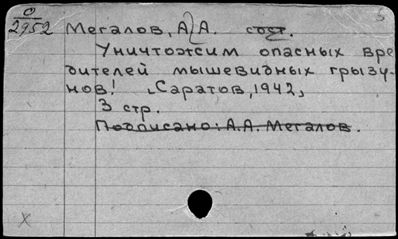 0
2952
Мегалов, А. А. сост.
Уничтожим опасных вре
дителей мышевидных грызу-
нов! Саратов, 1942,
3 стр.
Подписано: А.А. Мегалов.
х